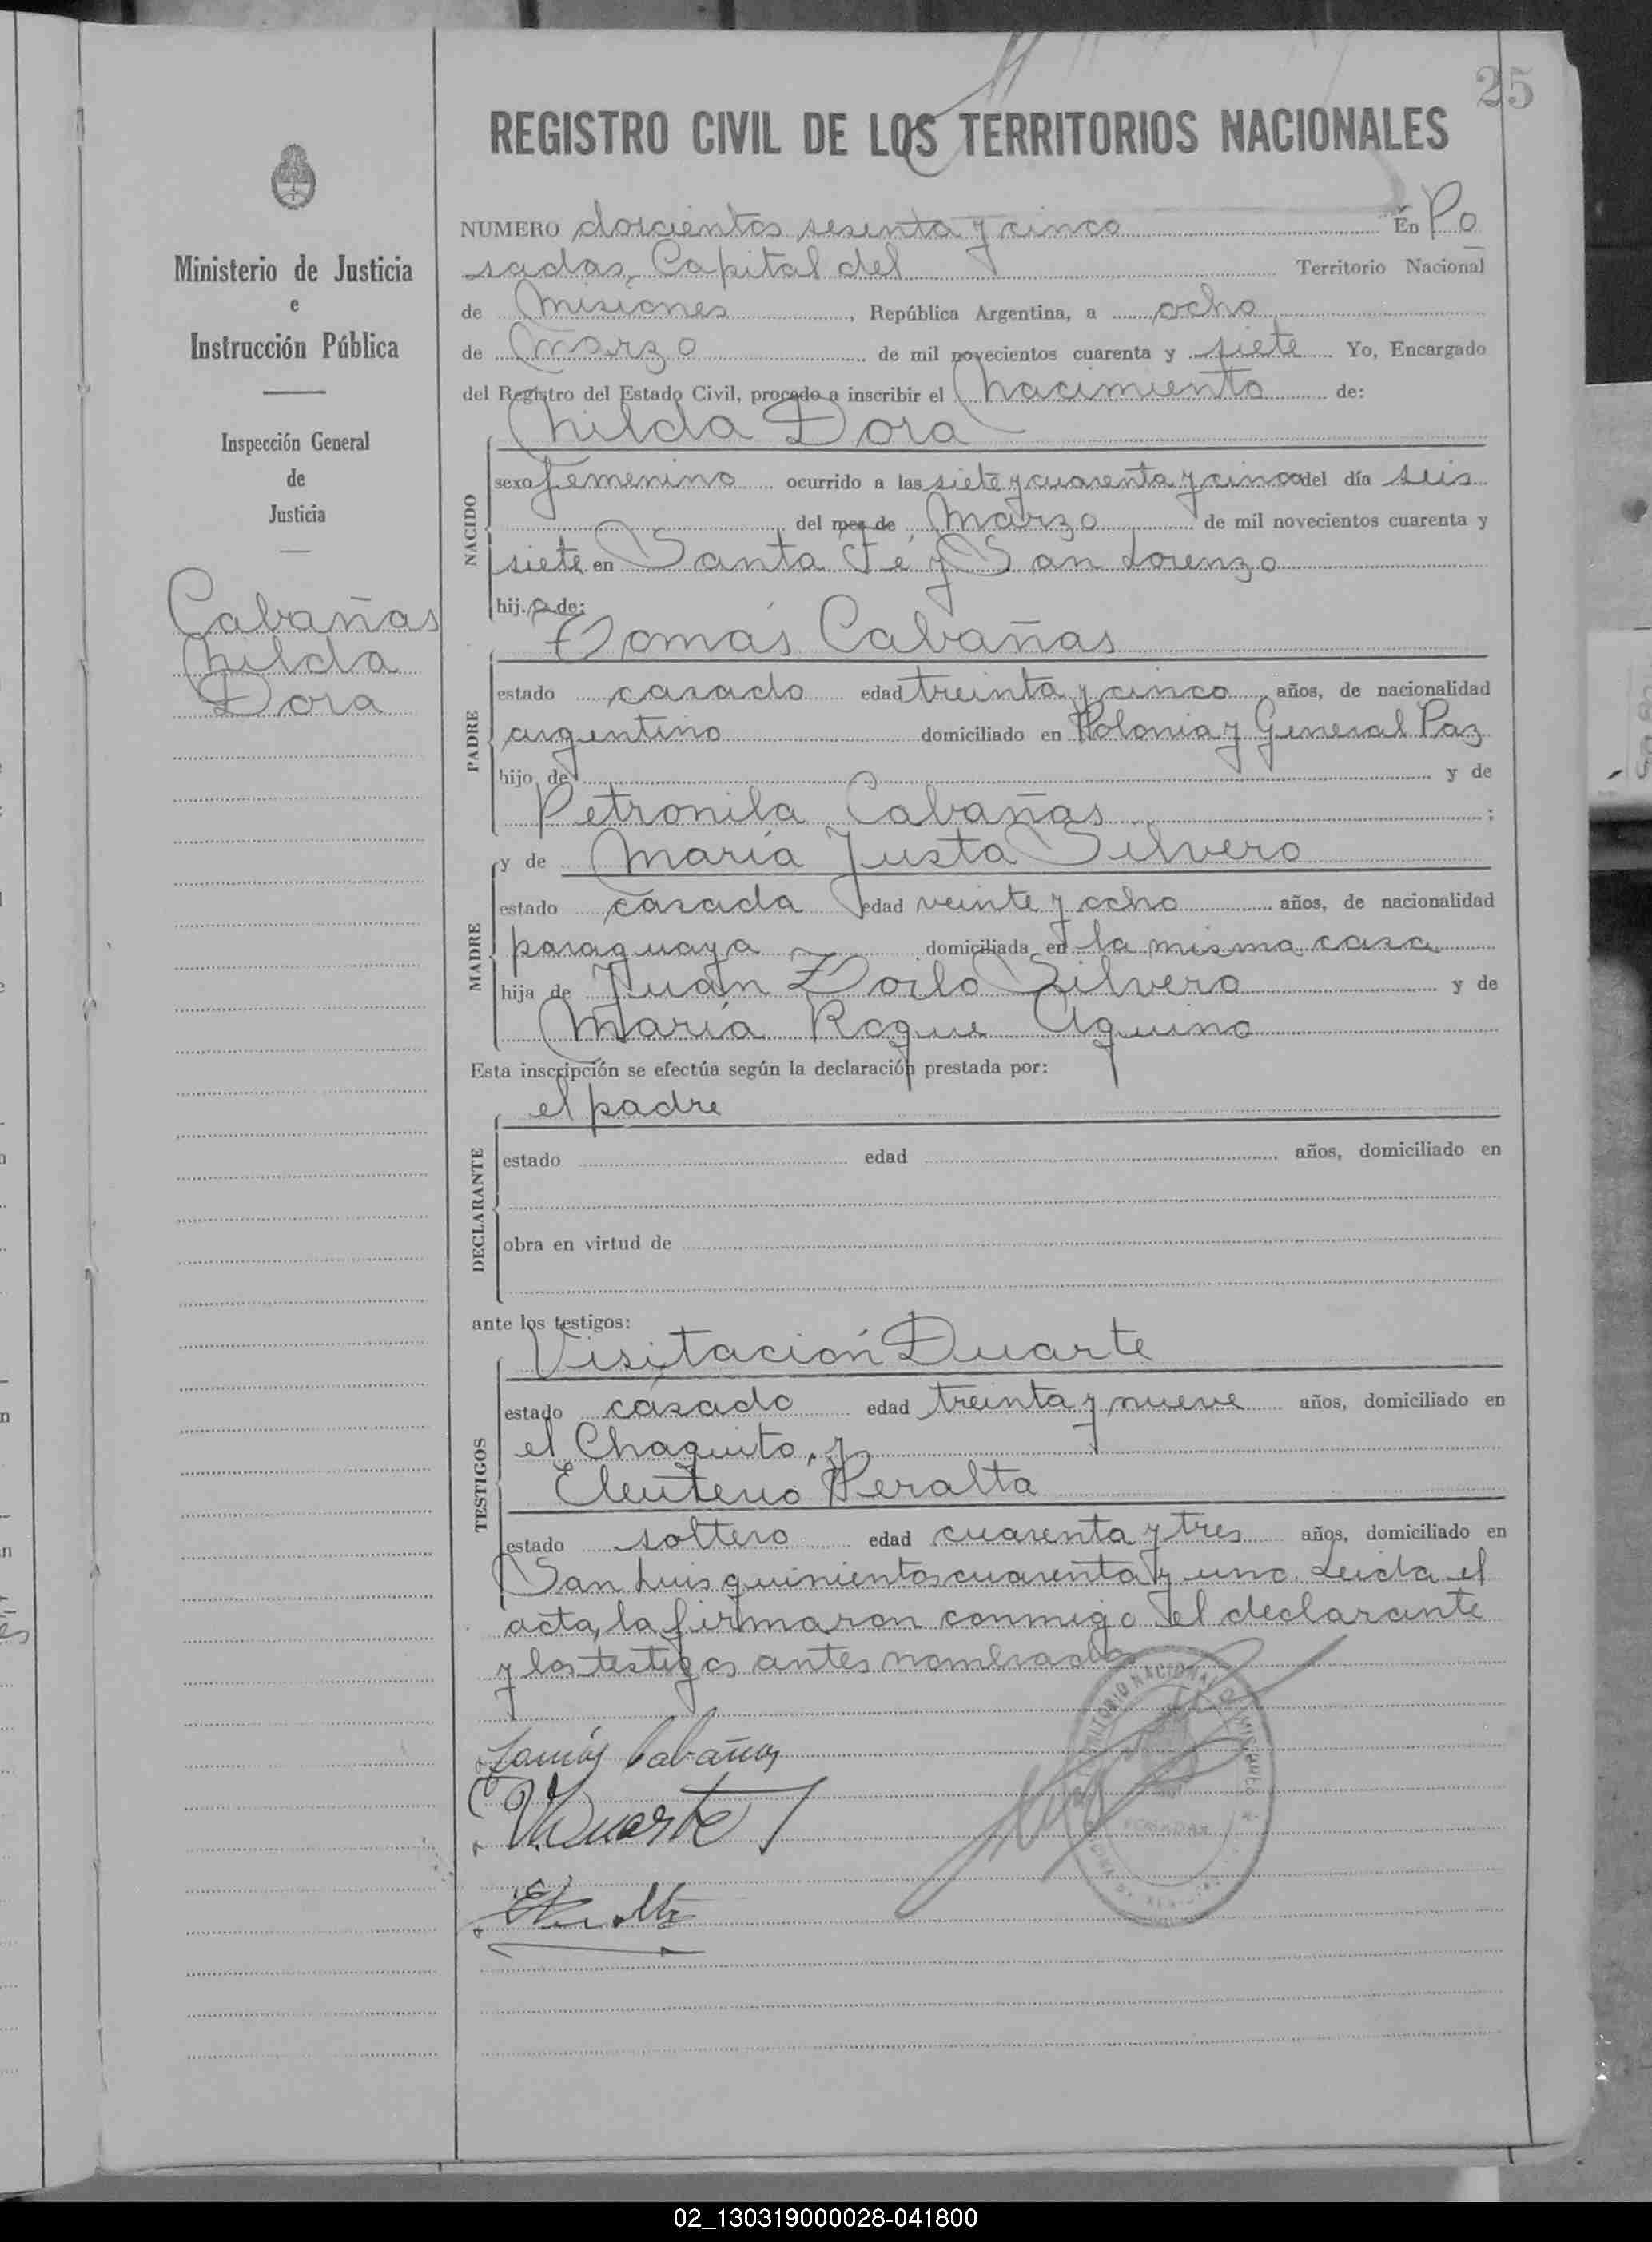 25
REGISTRO CIVIL DE LOS TERRITORIOS NACIONALES
Ministerio de Justicia
e
Instrucción Pública
Inspección General
de
Justicia
Cabañas
Nilda
Dora
NUMERO doscientos sesenta y cinco En Po
sadas, Capital del Territorio Nacional
de Misiones, República Argentina, a ocho
de Marzo de mil novecientos cuarenta y siete Yo, Encargado
del Registro del Estado Civil, procedo a inscribir el nacimiento de:
Nilda Dora
NACIDO
sexo femenino ocurrido a las siete y cuarenta y cinco del día seis
del mes de Marzo de mil novecientos cuarenta y
siete en Santa Fé y San Lorenzo
hij.a de:
Tomás Cabañas
PADRE
estado casado edad treinta y cinco años, de nacionalidad
argentino domiciliado en Polonia y General Paz
hijo de y de
Petronila Cabañas ;
y de María Justa Silvero
MADRE
estado casada edad veinte y ocho años, de nacionalidad
paraguaya domiciliada en la misma casa
hija de Juan Zoilo Silvero y de
María Roque Aquino
Esta inscripción se efectúa según la declaración prestada por:
el padre
DECLARANTE
estado edad años, domiciliado en
obra en virtud de
ante los testigos:
Visitación Duarte
TESTIGOS
estado casado edad treinta y nueve años, domiciliado en
el Chaquito, y
Eleuterio Peralta
estado soltero edad cuarenta y tres años, domiciliado en
San Luis quinientos cuarenta y uno. Leida el
acta, la firmaron conmigo el declarante
y los testigos antes nombrados
Tomás Cabañas
VDuarte
02_130319000028-041800